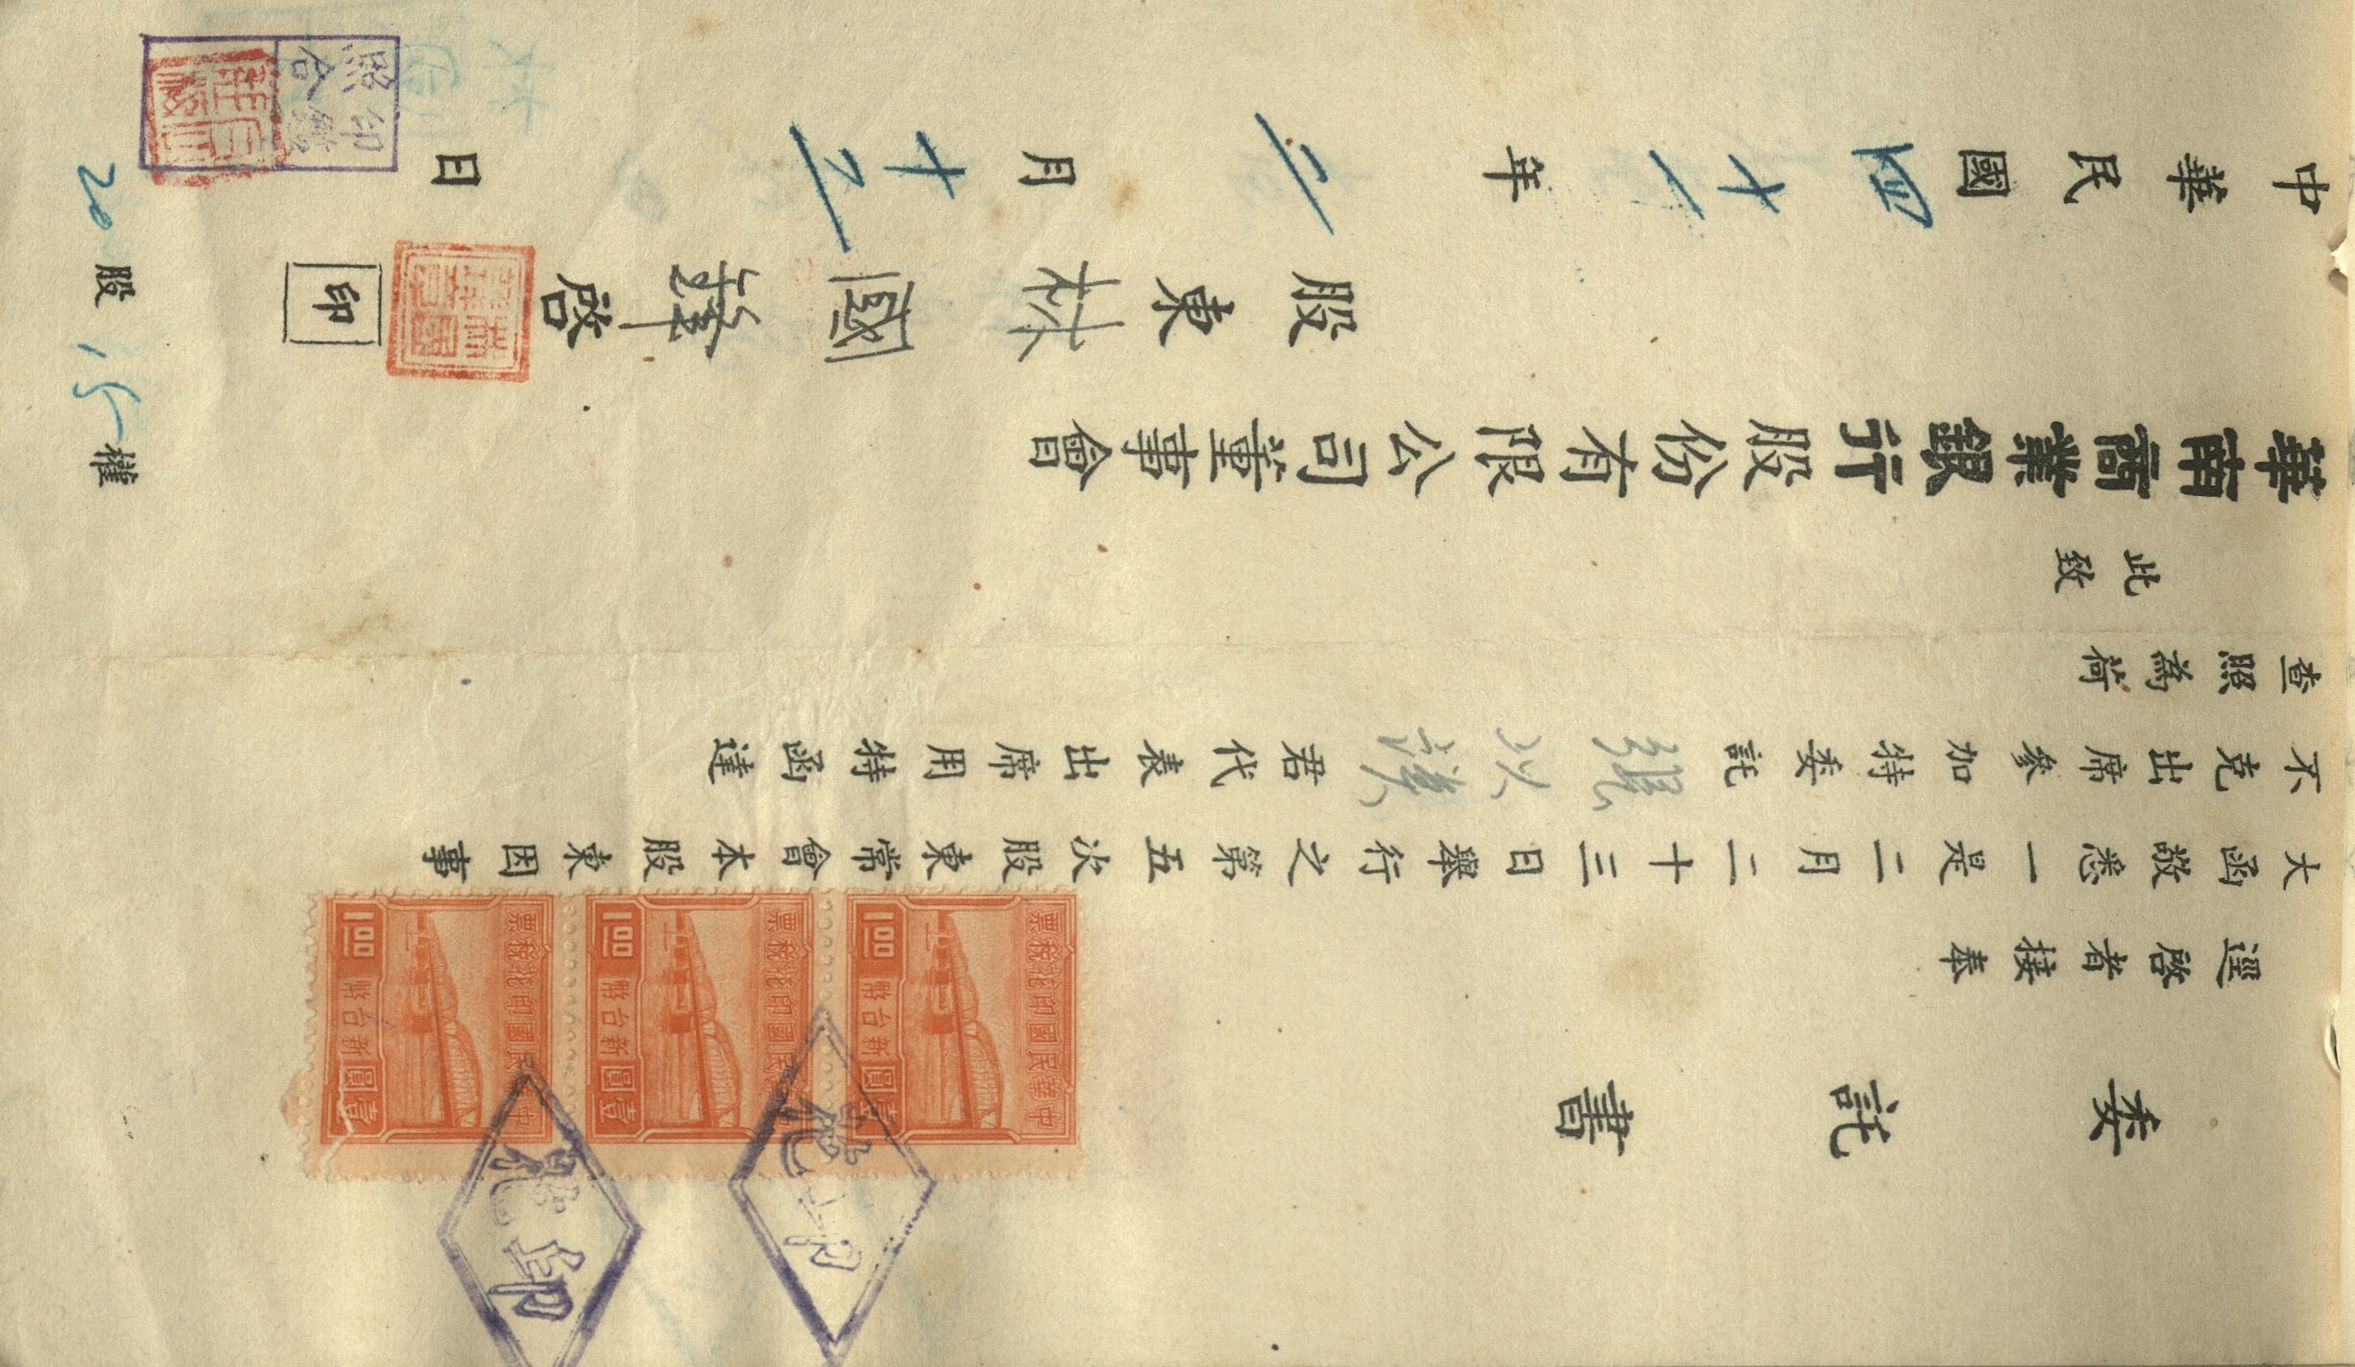 委託書
逕啓者接奉
大函敬悉一是二月二十三日舉行之第五次股東常會本股東因事
不克出席參加特委託張以謨君代表出席用特函達
查照為荷
此致
華南商業銀行股份有限公司董事會
股東林國華啓
印
中華民國四十一年二月十三日
20股15權
印鑑
照合
中華民國印花稅票
壹圓新台幣
1.00
中華民國印花稅票
壹圓新台幣
1.00
中華民國印花稅票
壹圓新台幣
1.00